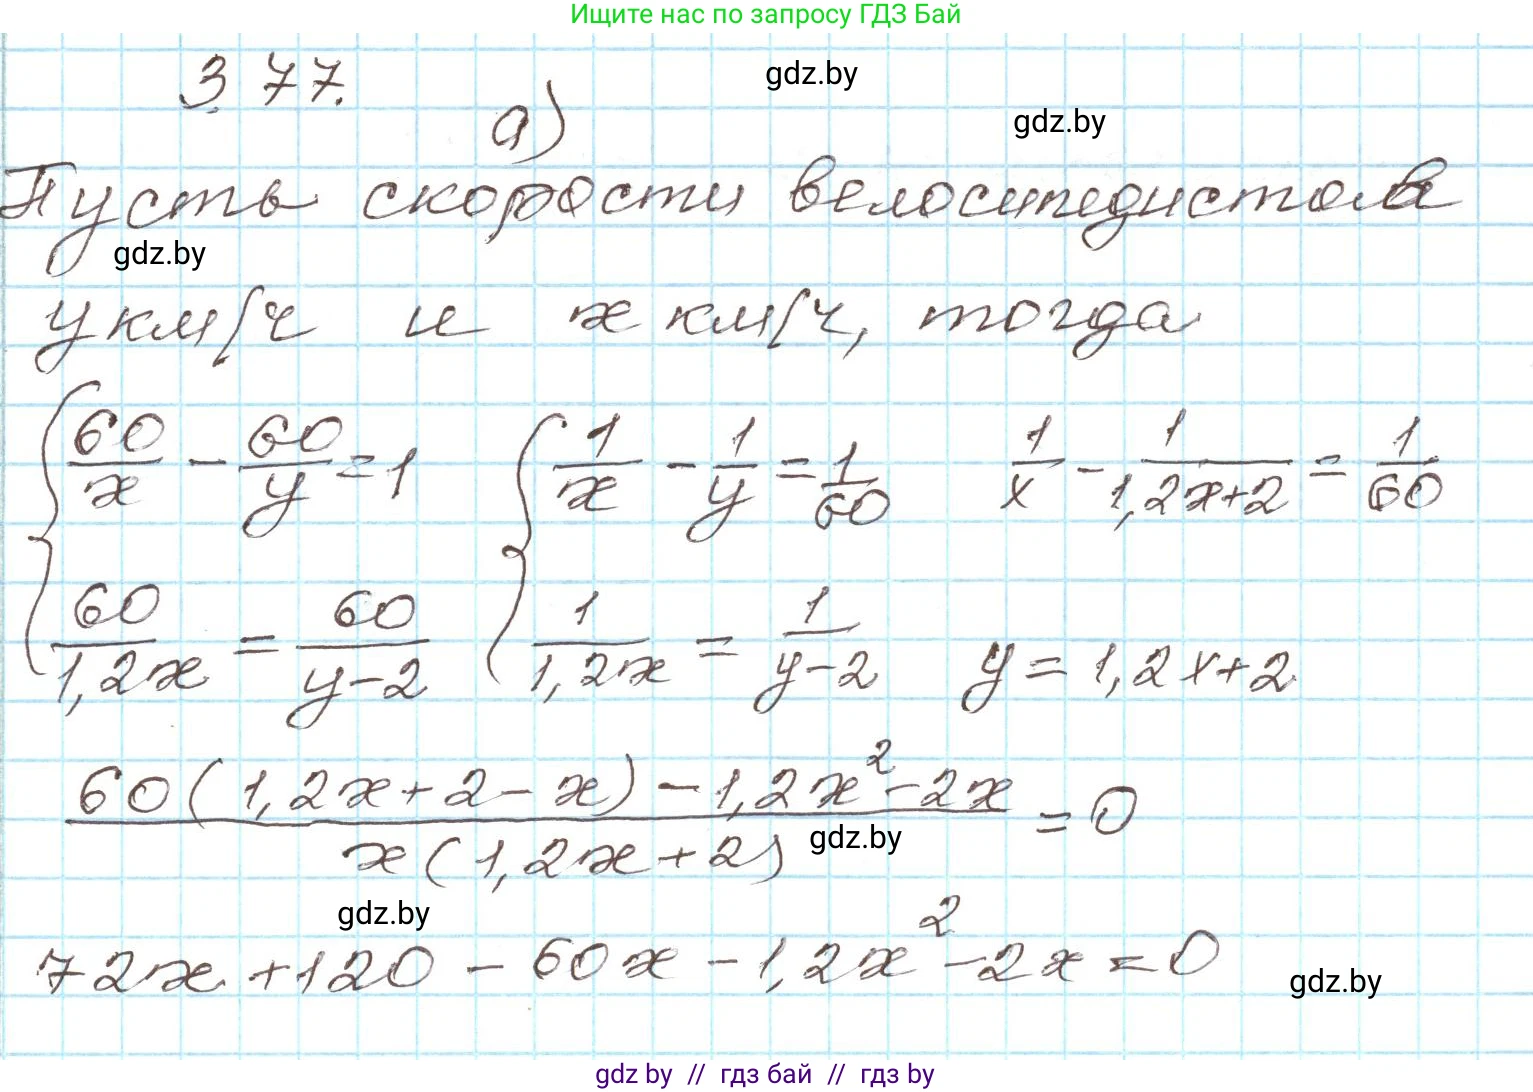 Ищите нас по запросу ГДЗ Бай
3.77.
gdz.by
а)
gdz.by
Пусть скорости велосипедистов
gdz.by
y км/ч и x км/ч, тогда
{ 60/x - 60/y = 1 { 1/x - 1/y = 1/60 1/x - 1/(1,2x+2) = 1/60
60/(1,2x) = 60/(y-2) 1/(1,2x) = 1/(y-2) y = 1,2x+2
(60(1,2x+2-x) - 1,2x² - 2x)/(x(1,2x+2)) = 0
gdz.by
gdz.by
72x + 120 - 60x - 1,2x² - 2x = 0
gdz.by
gdz by // гдз бай // гдз by